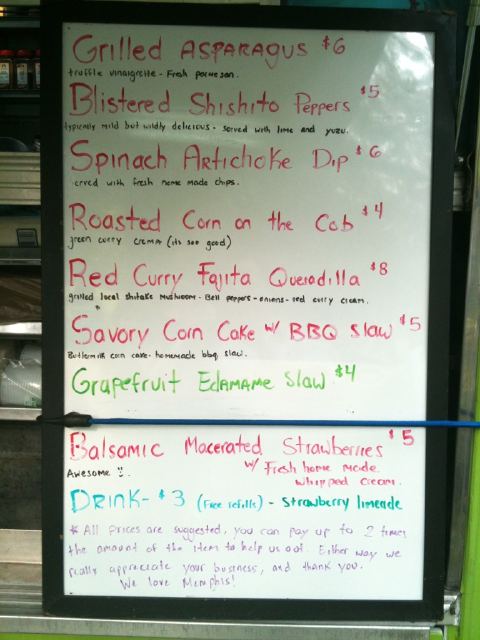 Grilled ASPARAGUS $6
truffle vinaigrette - Fresh parmesan.
Blistered Shishito Peppers $5
typically mild but wildly delicious - served with lime and yuzu.
Spinach Artichoke Dip $6
erved with fresh home made chips.
Roasted Corn on the Cob $4
green curry crema (its soo good)
Red Curry Fajita Quesadilla $8
grilled local shitake mushroom - Bell peppers - onions - red curry cream.
Savory Corn Cake w/ BBQ Slaw $5
Buttermilk corn cake - homemade bbq slaw.
Grapefruit Edamame Slaw $4
Balsamic Macerated Strawberries $5
Awesome w/ Fresh home made
whipped cream.
DRINK - $3 (Free refills) - Strawberry limeade
* All prices are suggested, you can pay up to 2 times
the amount of the item to help us out. Either way we
really appreciate your business, and thank you.
We love Memphis!